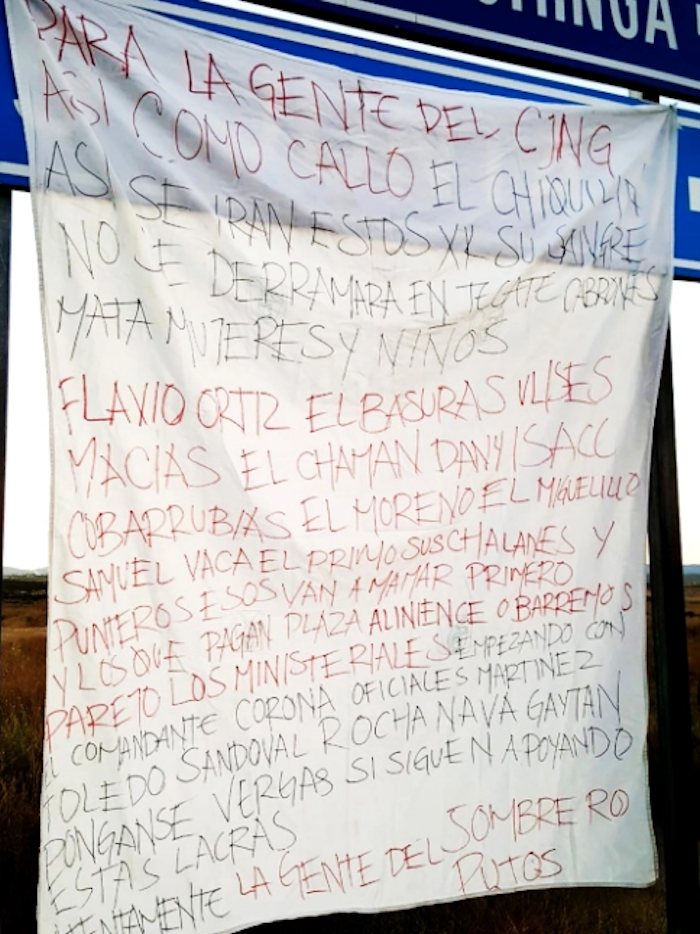 PARA LA GENTE DEL CJNG
ASI COMO CALLO EL CHIQUILIN
ASI SE IRAN ESTOS XK SU SANGRE
NO SE DERRAMARA EN TECATE CABRONES
MATA MUJERES Y NIÑOS
FLAVIO ORTIZ EL BASURAS VLISES
MACIAS EL CHAMAN DANY ISACC
COBARRUBIAS EL MORENO EL MIGUELILLO
SAMUEL VACA EL PRIMO SUS CHALANES Y
PUNTEROS ESOS VAN A MAMAR PRIMERO
Y LOS QUE PAGAN PLAZA ALINIENCE O BARREMOS
PAREJO LOS MINISTERIALES EMPEZANDO CON
COMANDANTE CORONA OFICIALES MARTINEZ
TOLEDO SANDOVAL ROCHA NAVA GAYTAN
PONGANSE VERGAS SI SIGUEN APOYANDO
ESTAS LACRAS
ATENTAMENTE LA GENTE DEL SOMBRERO
PUTOS